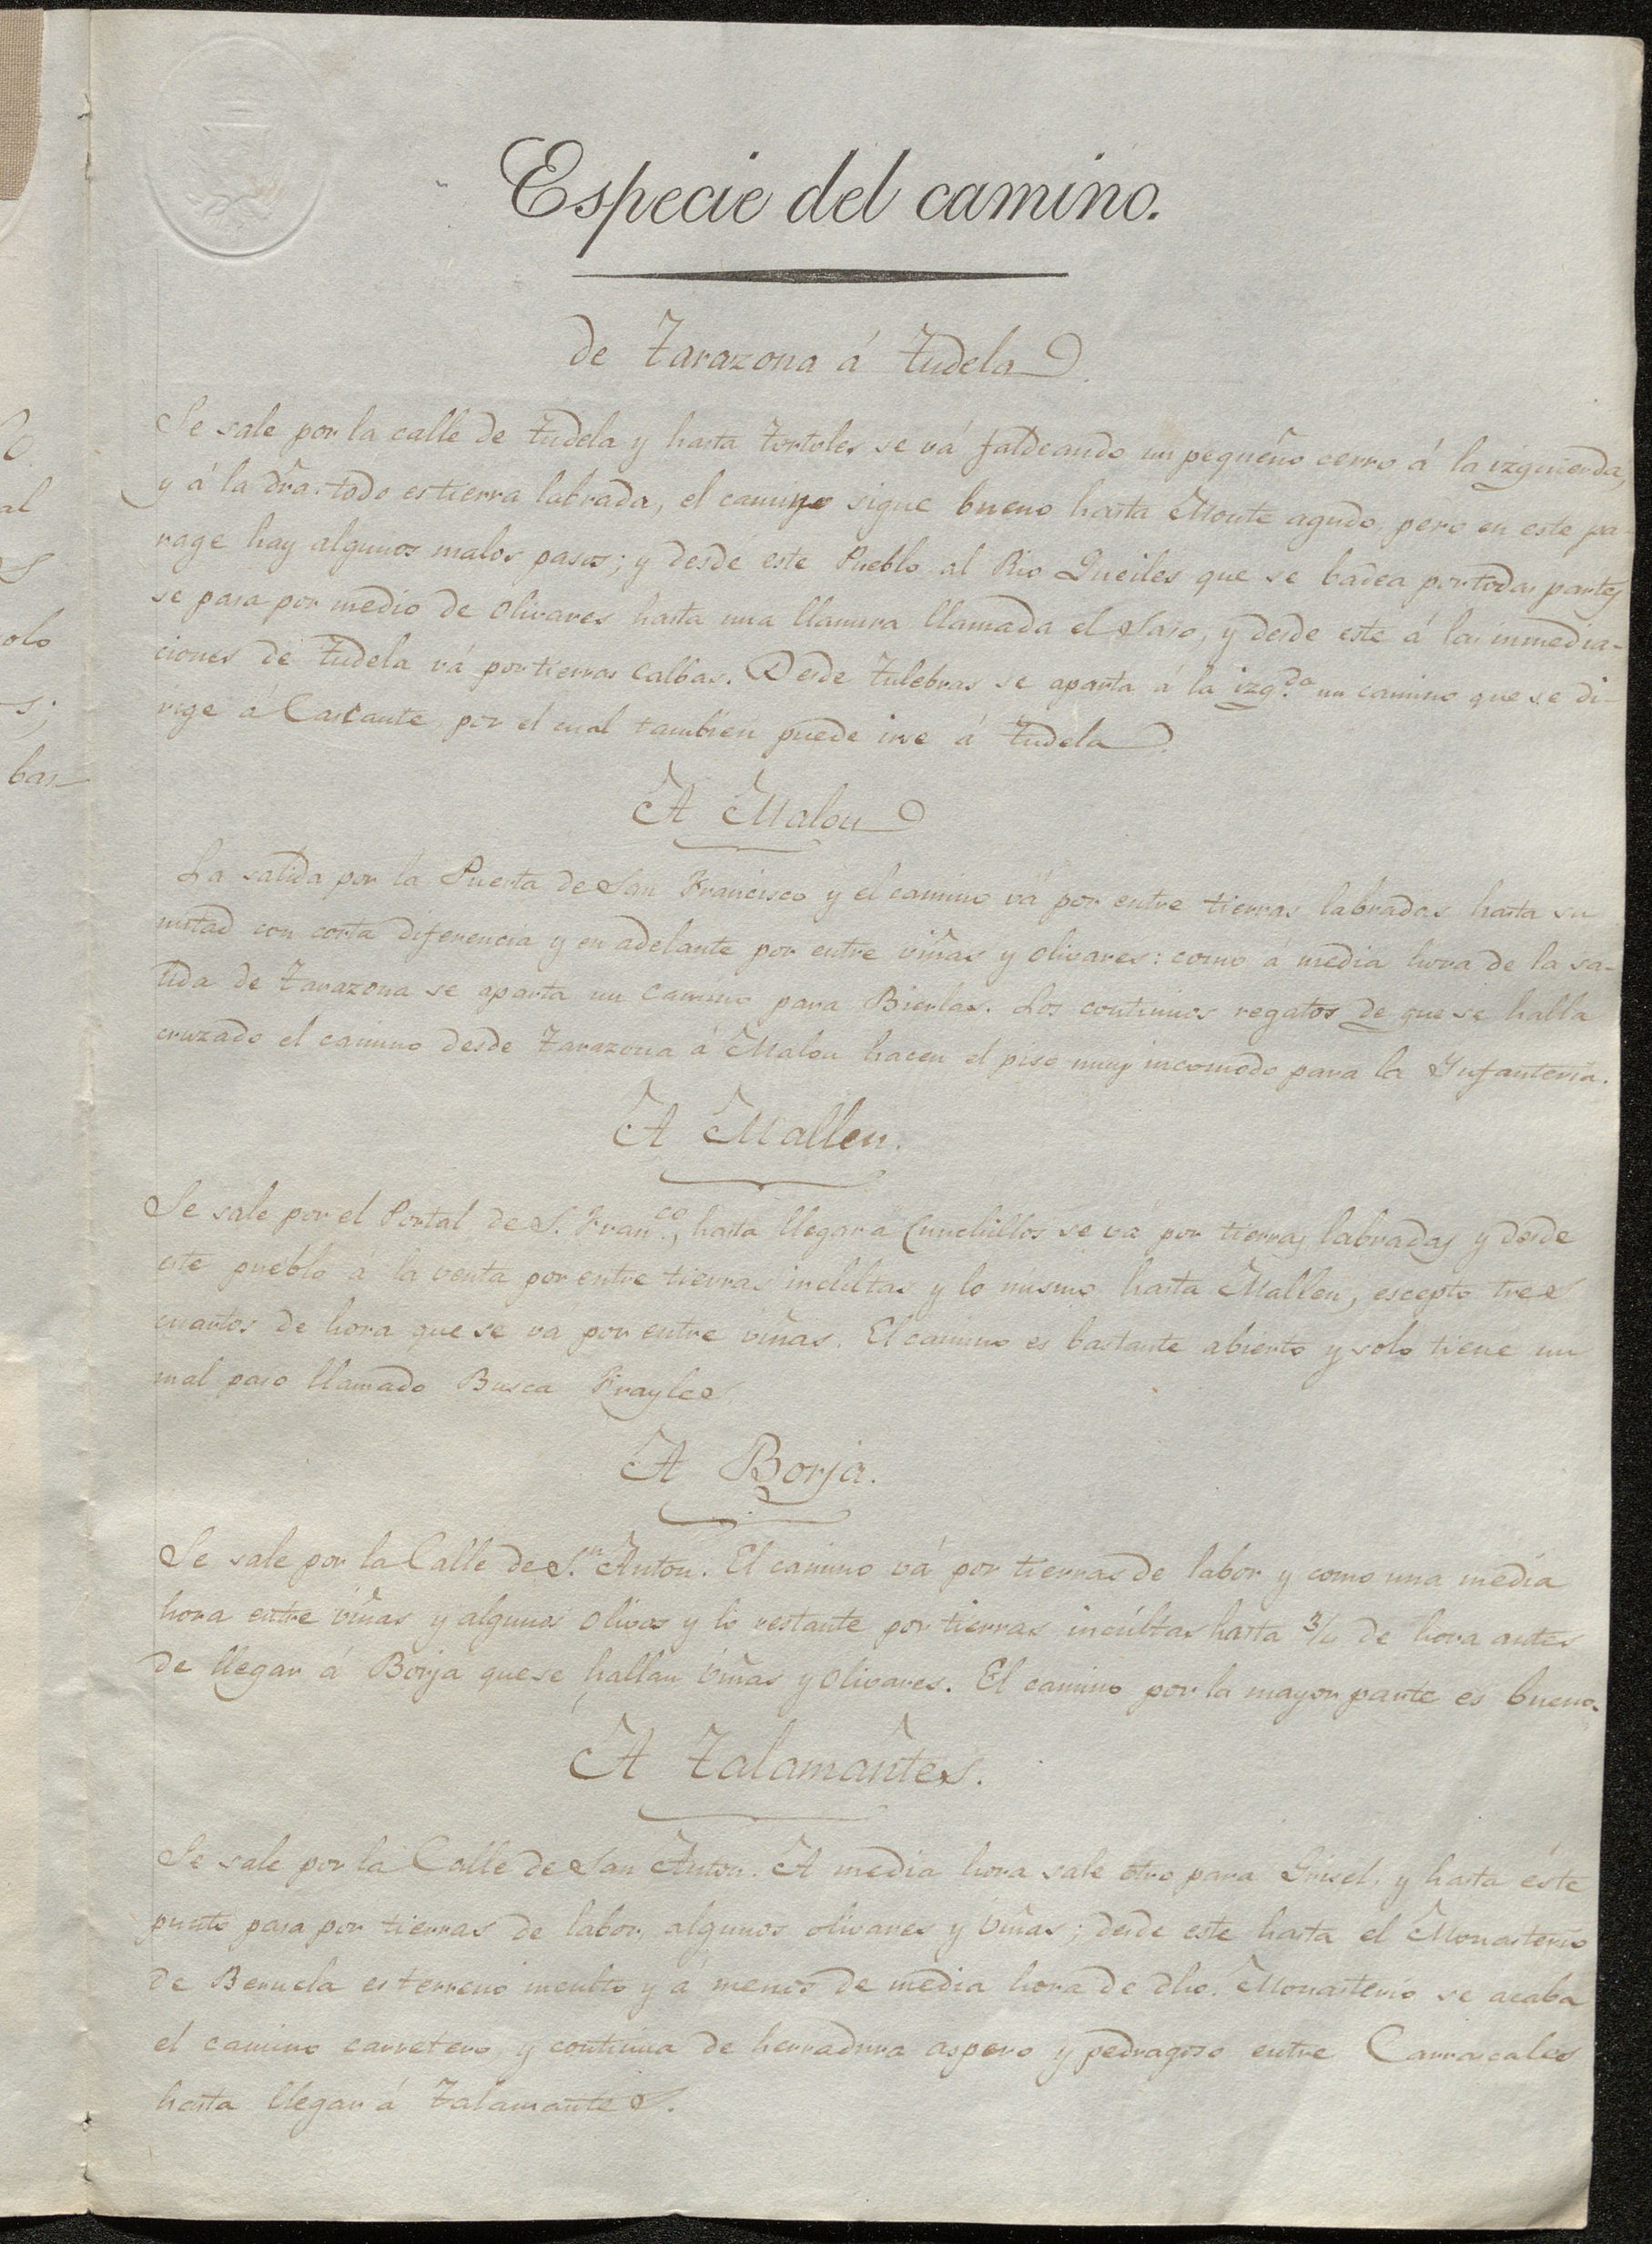 Especie del camino.
de Tarazona á Tudela
Se sale por la calle de Tudela y hasta Tortoles se vá faldeando un pequeño cerro á la izquierda,
y á la dra. todo es tierra labrada, el camino sigue bueno hasta Monte agudo, pero en este pa-
rage hay algunos malos pasos; y desde este Pueblo al Rio Queiles que se badea por todas partes
se pasa por medio de olivares hasta una llanura llamada el Saso, y desde este á las inmedia-
ciones de Tudela vá por tierras calbas. Desde Tulebras se aparta á la izq.da un camino que se di-
rige á Cascante, por el cual tambien puede irse á Tudela.
A Malon
La salida por la Puerta de San Francisco y el camino vá por entre tierras labradas hasta su
mitad con corta diferencia y en adelante por entre viñas y olivares: como á media hora de la sa-
lida de Tarazona se aparta un camino para Bierlas. Los continuos regatos de que se halla
cruzado el camino desde Tarazona á Malon hacen el piso muy incomodo para la Infanteria.
A Mallen.
Se sale por el Portal de S. Fran.co, hasta llegar á Cunchillos se vá por tierras labradas y desde
este pueblo á la venta por entre tierras incultas y lo mismo hasta Mallen, escepto tres
cuartos de hora que se va por entre viñas. El camino es bastante abierto y solo tiene un
mal paso llamado Busca Frayles
A Borja.
Se sale por la Calle de S.n Anton. El camino vá por tierras de labor y como una media
hora entre viñas y algunos olivos y lo restante por tierras incúltas hasta 3/4 de hora antes
de llegar á Borja que se hallan viñas y olivares. El camino por la mayor parte es bueno.
A Talamantes.
Se sale por la Calle de San Anton. A media hora sale otro para Grisel, y hasta éste
punto pasa por tierras de labor, algunos olivares y viñas; desde este hasta el Monasterio
de Beruela es terreno inculto y á menos de media hora de dho. Monasterio se acaba
el camino carretero, y continua de herradura aspero y pedragoso entre Carrascales
hasta llegar á Talamantes.